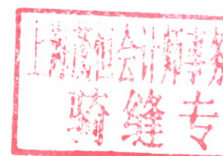 上 会计师事务
骑缝专